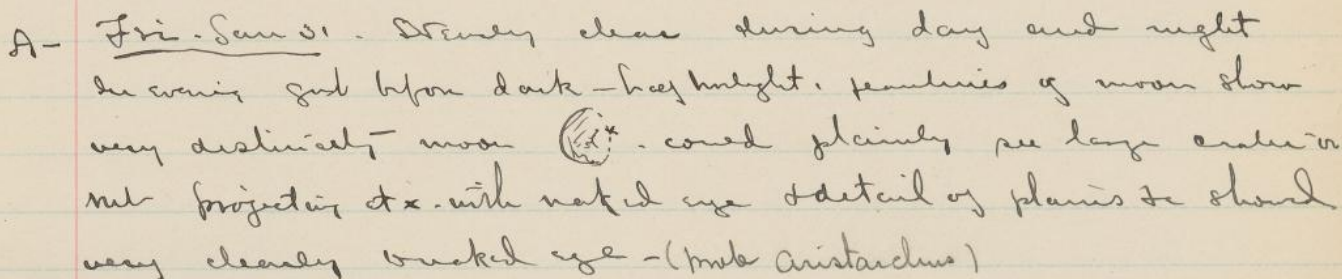 A- Fri. Jan 31. Steady clear during day and night
In evening just before dark - half twilight, features of moon show
very distinctly moon x. could plainly see large crater or
projecting at x. with naked eye & detail of plains &c showed
very clearly naked eye - (prob Aristarchus)